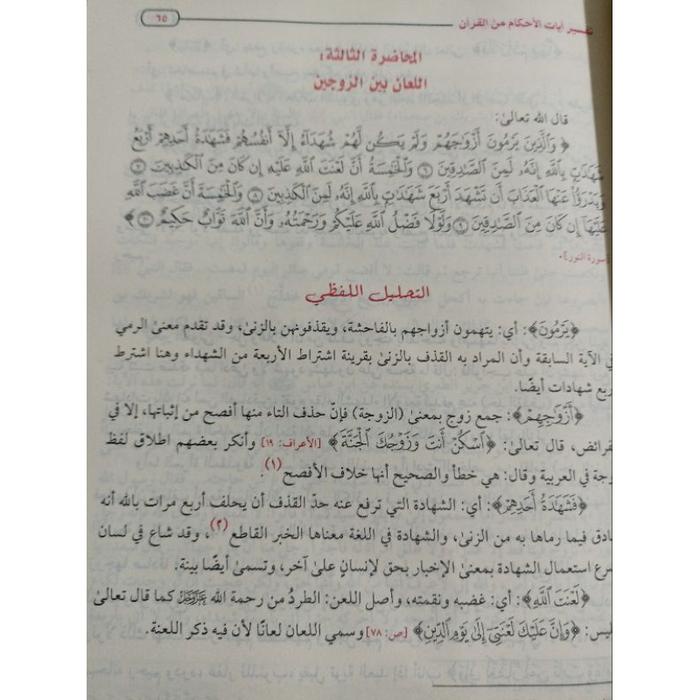 تفسير آيات الأحكام من القرآن
٦٥
المحاضرة الثالثة:
اللعان بين الزوجين
قال الله تعالىٰ:
﴿ وَٱلَّذِينَ يَرْمُونَ أَزْوَٰجَهُمْ وَلَمْ يَكُن لَّهُمْ شُهَدَآءُ إِلَّآ أَنفُسُهُمْ فَشَهَٰدَةُ أَحَدِهِمْ أَرْبَعُ
شَهَٰدَٰتٍۭ بِٱللَّهِ إِنَّهُۥ لَمِنَ ٱلصَّٰدِقِينَ ٦ وَٱلْخَٰمِسَةُ أَنَّ لَعْنَتَ ٱللَّهِ عَلَيْهِ إِن كَانَ مِنَ ٱلْكَٰذِبِينَ ٧
وَيَدْرَؤُا۟ عَنْهَا ٱلْعَذَابَ أَن تَشْهَدَ أَرْبَعَ شَهَٰدَٰتٍۭ بِٱللَّهِ إِنَّهُۥ لَمِنَ ٱلْكَٰذِبِينَ ٨ وَٱلْخَٰمِسَةَ أَنَّ غَضَبَ ٱللَّهِ
عَلَيْهَآ إِن كَانَ مِنَ ٱلصَّٰدِقِينَ ٩ وَلَوْلَا فَضْلُ ٱللَّهِ عَلَيْكُمْ وَرَحْمَتُهُۥ وَأَنَّ ٱللَّهَ تَوَّابٌ حَكِيمٌ ١٠ ﴾
[سورة النور].
التحليل اللفظي
﴿يَرْمُونَ﴾: أي: يتهمون أزواجهم بالفاحشة، ويقذفونهن بالزنىٰ، وقد تقدم معنىٰ الرمي
في الآية السابقة وأن المراد به القذف بالزنىٰ بقرينة اشتراط الأربعة من الشهداء وهنا اشترط
أربع شهادات أيضًا.
﴿أَزْوَٰجَهُمْ﴾: جمع زوج بمعنىٰ (الزوجة) فإنّ حذف التاء منها أفصح من إثباتها، إلا في
الفرائض، قال تعالىٰ: ﴿ٱسْكُنْ أَنتَ وَزَوْجُكَ ٱلْجَنَّةَ﴾ [الأعراف: ١٩] وأنكر بعضهم اطلاق لفظ
زوجة في العربية وقال: هي خطأ والصحيح أنها خلاف الأفصح(١).
﴿فَشَهَٰدَةُ أَحَدِهِمْ﴾: أي: الشهادة التي ترفع عنه حدّ القذف أن يحلف أربع مرات بالله أنه
صادق فيما رماها به من الزنىٰ، والشهادة في اللغة معناها الخبر القاطع(٢)، وقد شاع في لسان
الشرع استعمال الشهادة بمعنىٰ الإخبار بحق لإنسانٍ علىٰ آخر، وتسمىٰ أيضًا بينة.
﴿لَعْنَتَ ٱللَّهِ﴾: أي: غضبه ونقمته، وأصل اللعن: الطردُ من رحمة الله ﷿ كما قال تعالىٰ
لإبليس: ﴿وَإِنَّ عَلَيْكَ لَعْنَتِىٓ إِلَىٰ يَوْمِ ٱلدِّينِ﴾ [ص: ٧٨] وسمي اللعان لعانًا لأن فيه ذكر اللعنة.